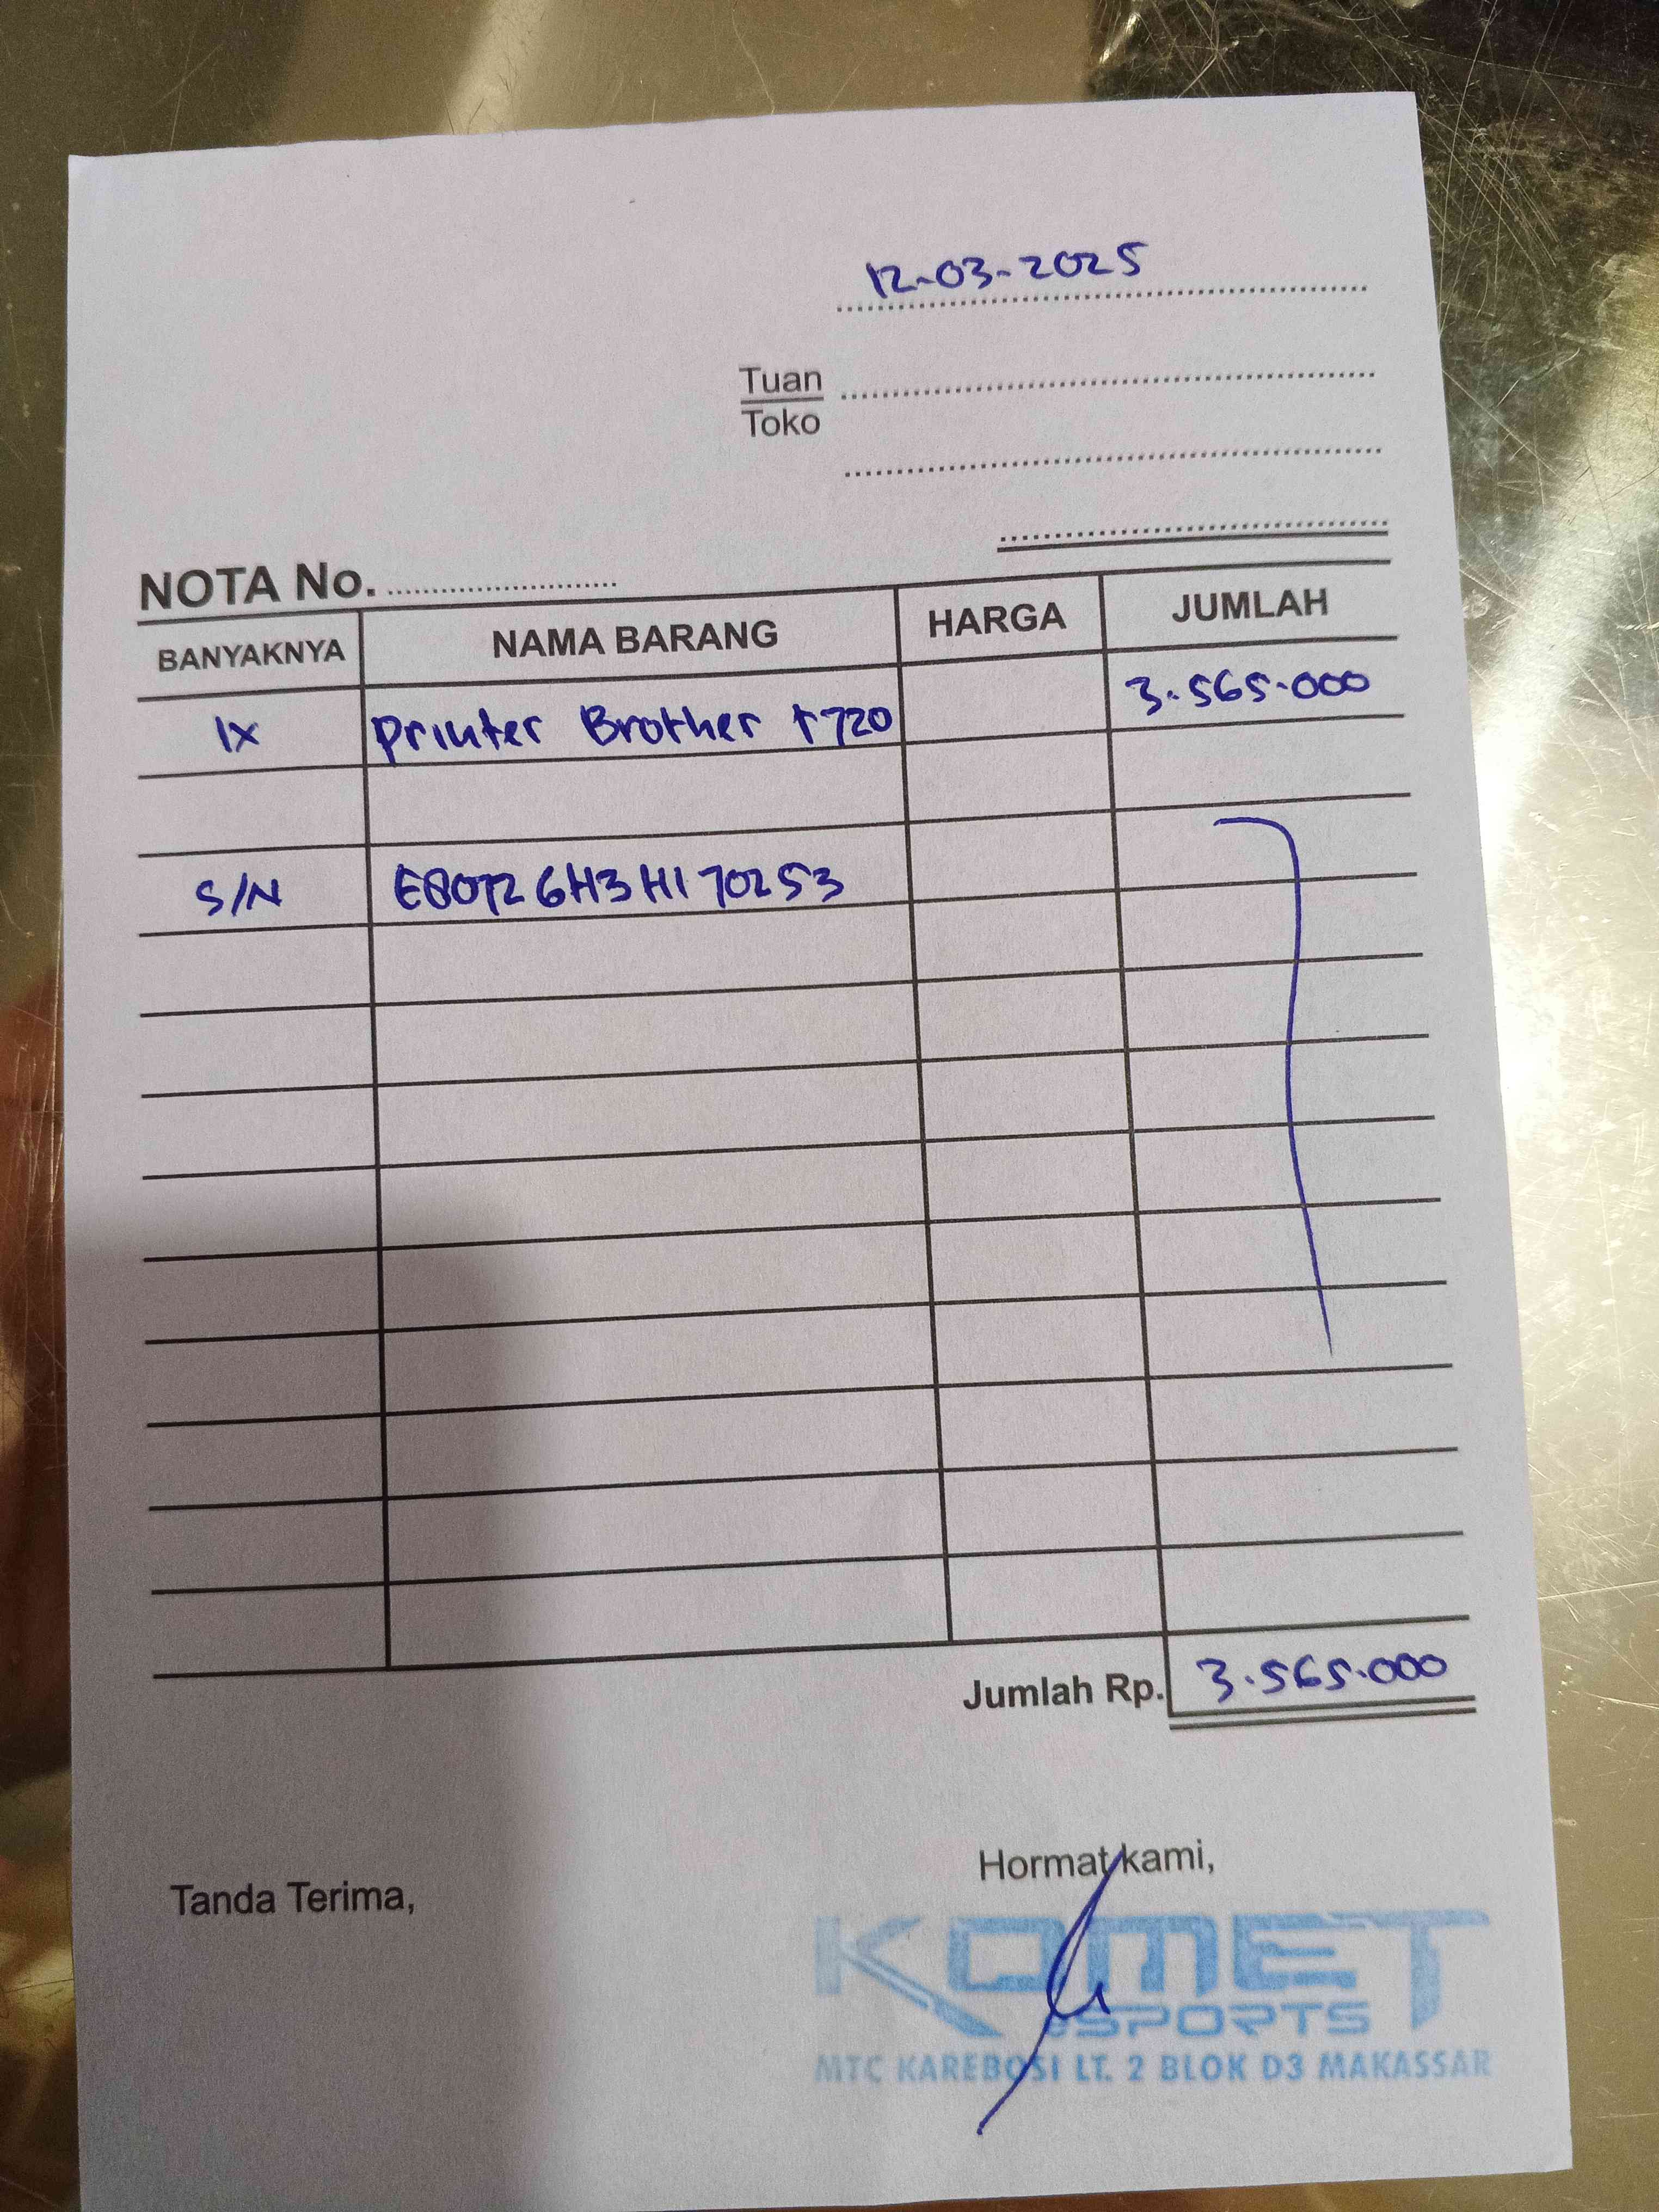 12-03-2025
Tuan
Toko
NOTA No.
BANYAKNYA NAMA BARANG HARGA JUMLAH
1x Printer Brother t720 3.565.000
S/N E80726H3H170253
Jumlah Rp. 3.565.000
Tanda Terima, Hormat kami,
KOMET
eSPORTS
MTC KAREBOSI LT. 2 BLOK D3 MAKASSAR